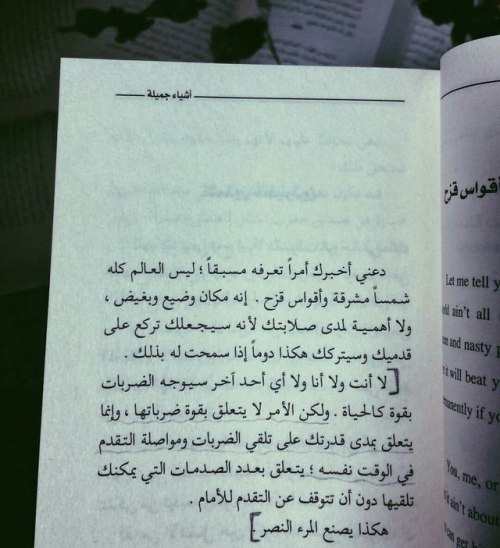 أشياء جميلة
دعني أخبرك أمراً تعرفه مسبقاً ؛ ليس العالم كله
شمساً مشرقة وأقواس قزح . إنه مكان وضيع وبغيض ،
ولا أهمية لمدى صلابتك لأنه سيجعلك تركع على
قدميك وسيتركك هكذا دوماً إذا سمحت له بذلك .
لا أنت ولا أنا ولا أي أحد آخر سيوجه الضربات
بقوة كالحياة . ولكن الأمر لا يتعلق بقوة ضرباتها ، وإنما
يتعلق بمدى قدرتك على تلقي الضربات ومواصلة التقدم
في الوقت نفسه ؛ يتعلق بعدد الصدمات التي يمكنك
تلقيها دون أن تتوقف عن التقدم للأمام .
هكذا يصنع المرء النصر
أقواس قزح
Let me tell y
ain't all
and nasty p
it will beat y
manently if yo
You, me, or
ain't about
can get h